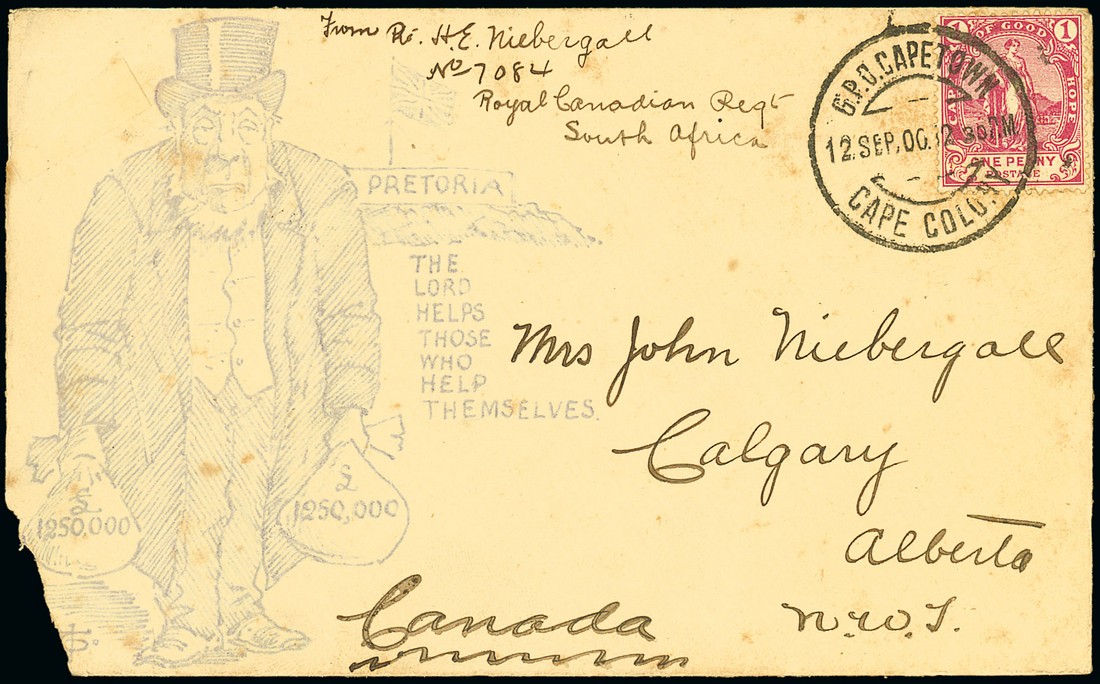 From Pt. H.E. Niebergall
No 7084
Royal Canadian Regt
South Africa
1 OF GOOD 1
HOPE
ONE PENNY
POSTAGE
G.P.O. CAPETOWN
12.SEP.00.12 30PM
CAPE COLONY
PRETORIA
THE
LORD
HELPS
THOSE
WHO
HELP
THEMSELVES.
£
1250,000
£
1250,000
Mrs John Niebergall
Calgary
Alberta
N.W.T.
Canada